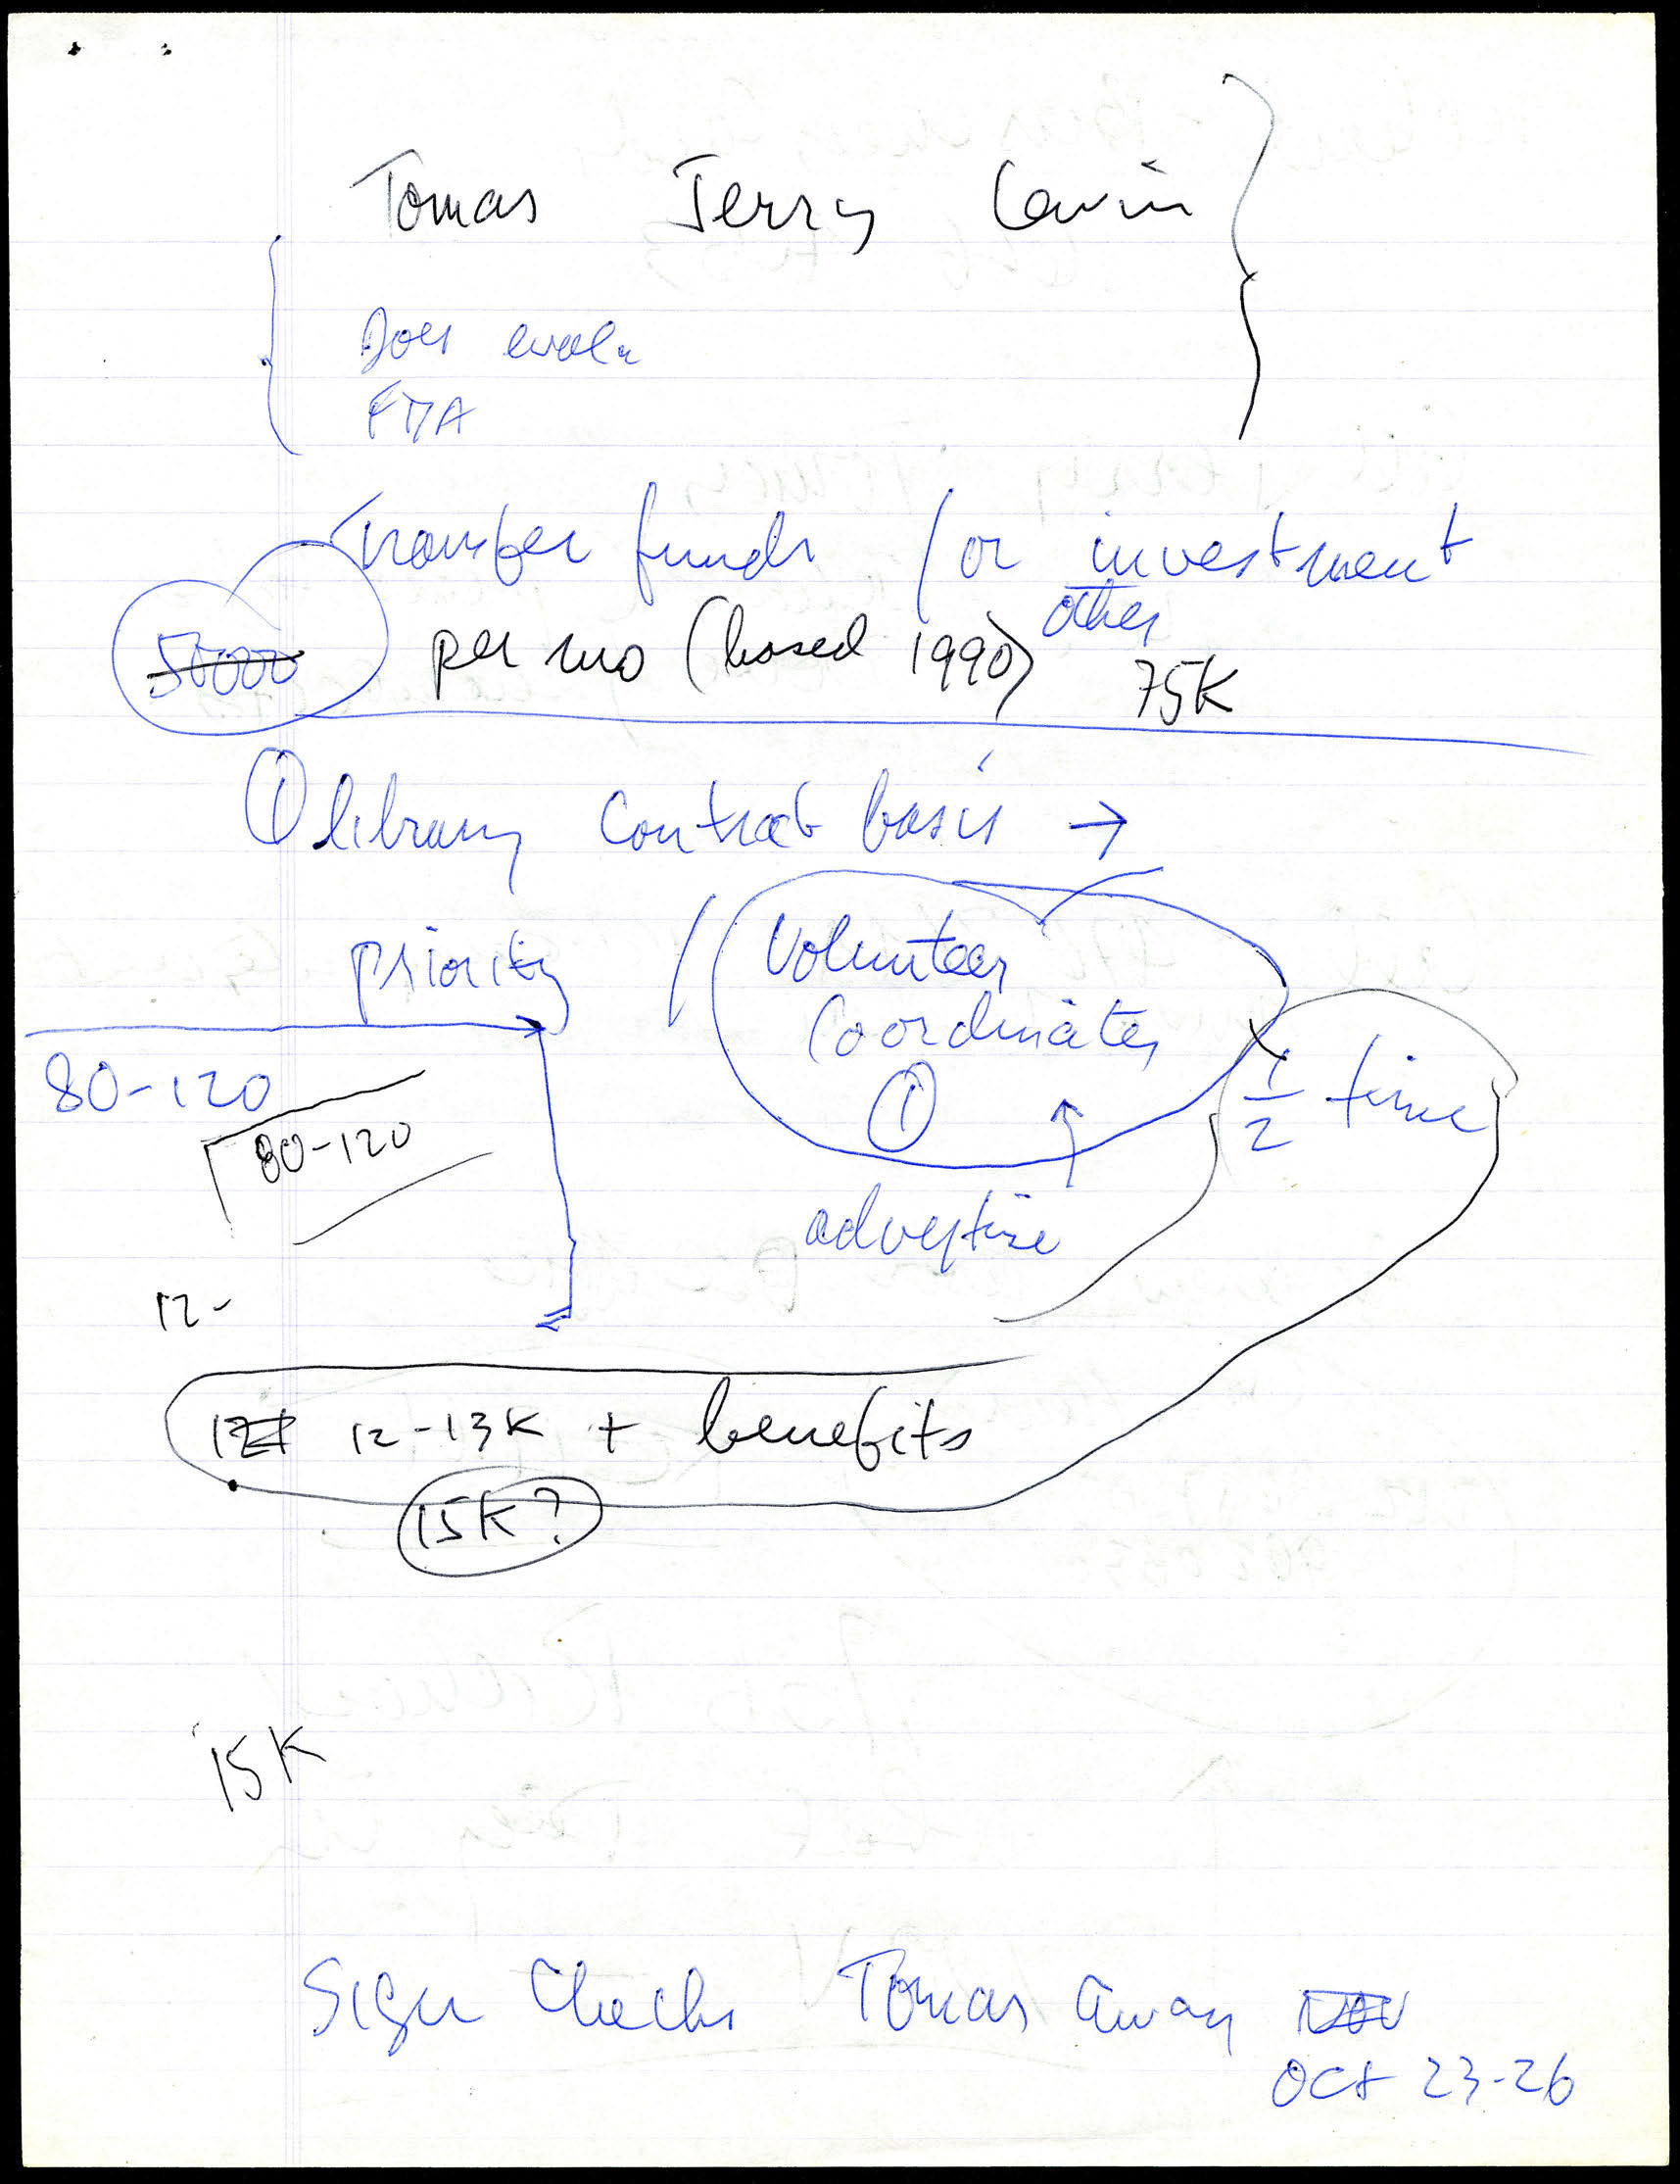 Tomas Jerry Lavin
Does eval.
FDA
Transfer funds / or investment
other
50000 per mo (based 1990) 75K
① library contract basis →
priority / Volunteer
Coordinator
①
1/2 time
80-120
80-120
advertise
12-
12 12-13K + benefits
15K?
15K
Sign Checks Tomas Away NOV
OCT 23-26